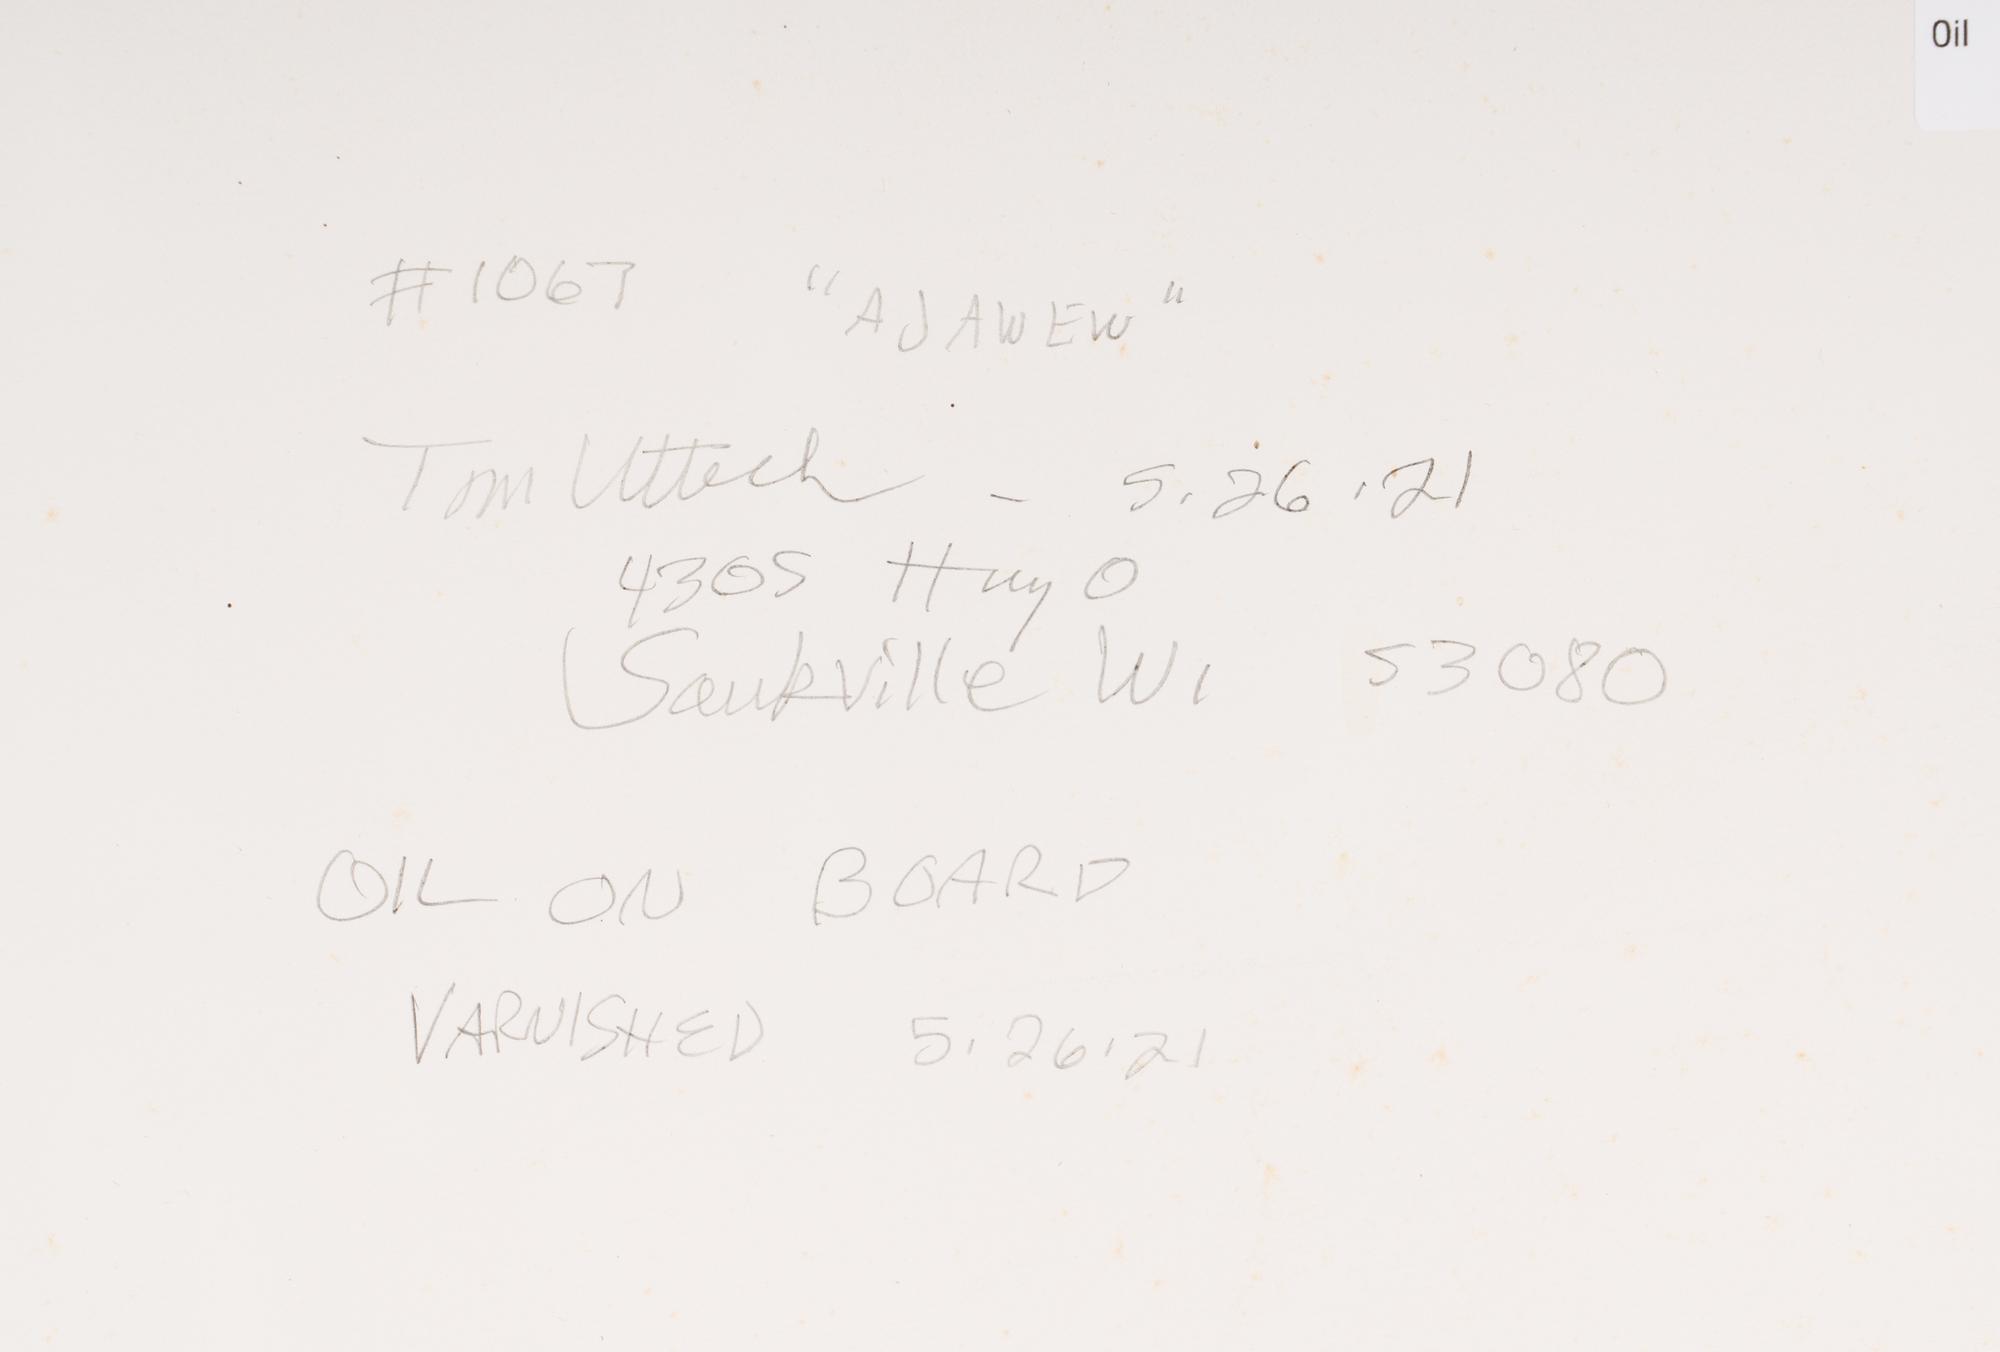 Oil
#1067 "AJAWEW"
Tom Uttech - 5.26.21
4305 Hwy O
Saukville Wi 53080
OIL ON BOARD
VARNISHED 5.26.21